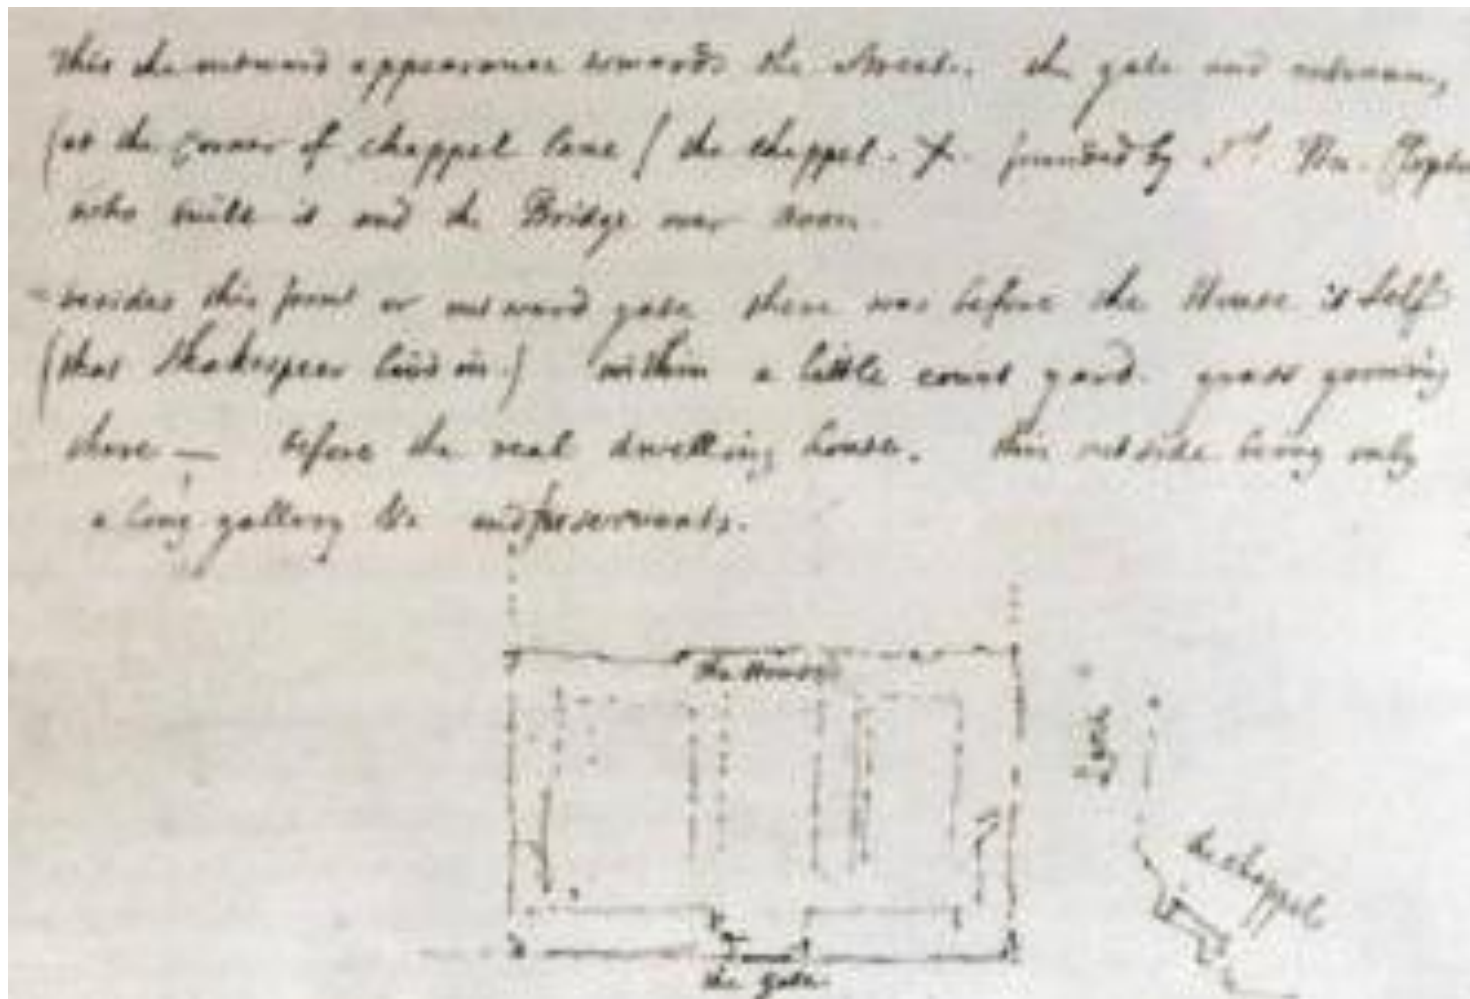 this the outward appearance towards the Street. the gate and entrance,
(at the Corner of chappel lane / the chappel. X. founded by Sr. Hu. Clopton
who built it and the Bridge over Avon.
besides this front or outward gate there was before the House it self
(that Shakespear livd in.) within a little court yard. grass growing
there — before the real dwelling house. this outside being only
a long gallery &c and for servants.
The House
lane
the chappel
the gate.